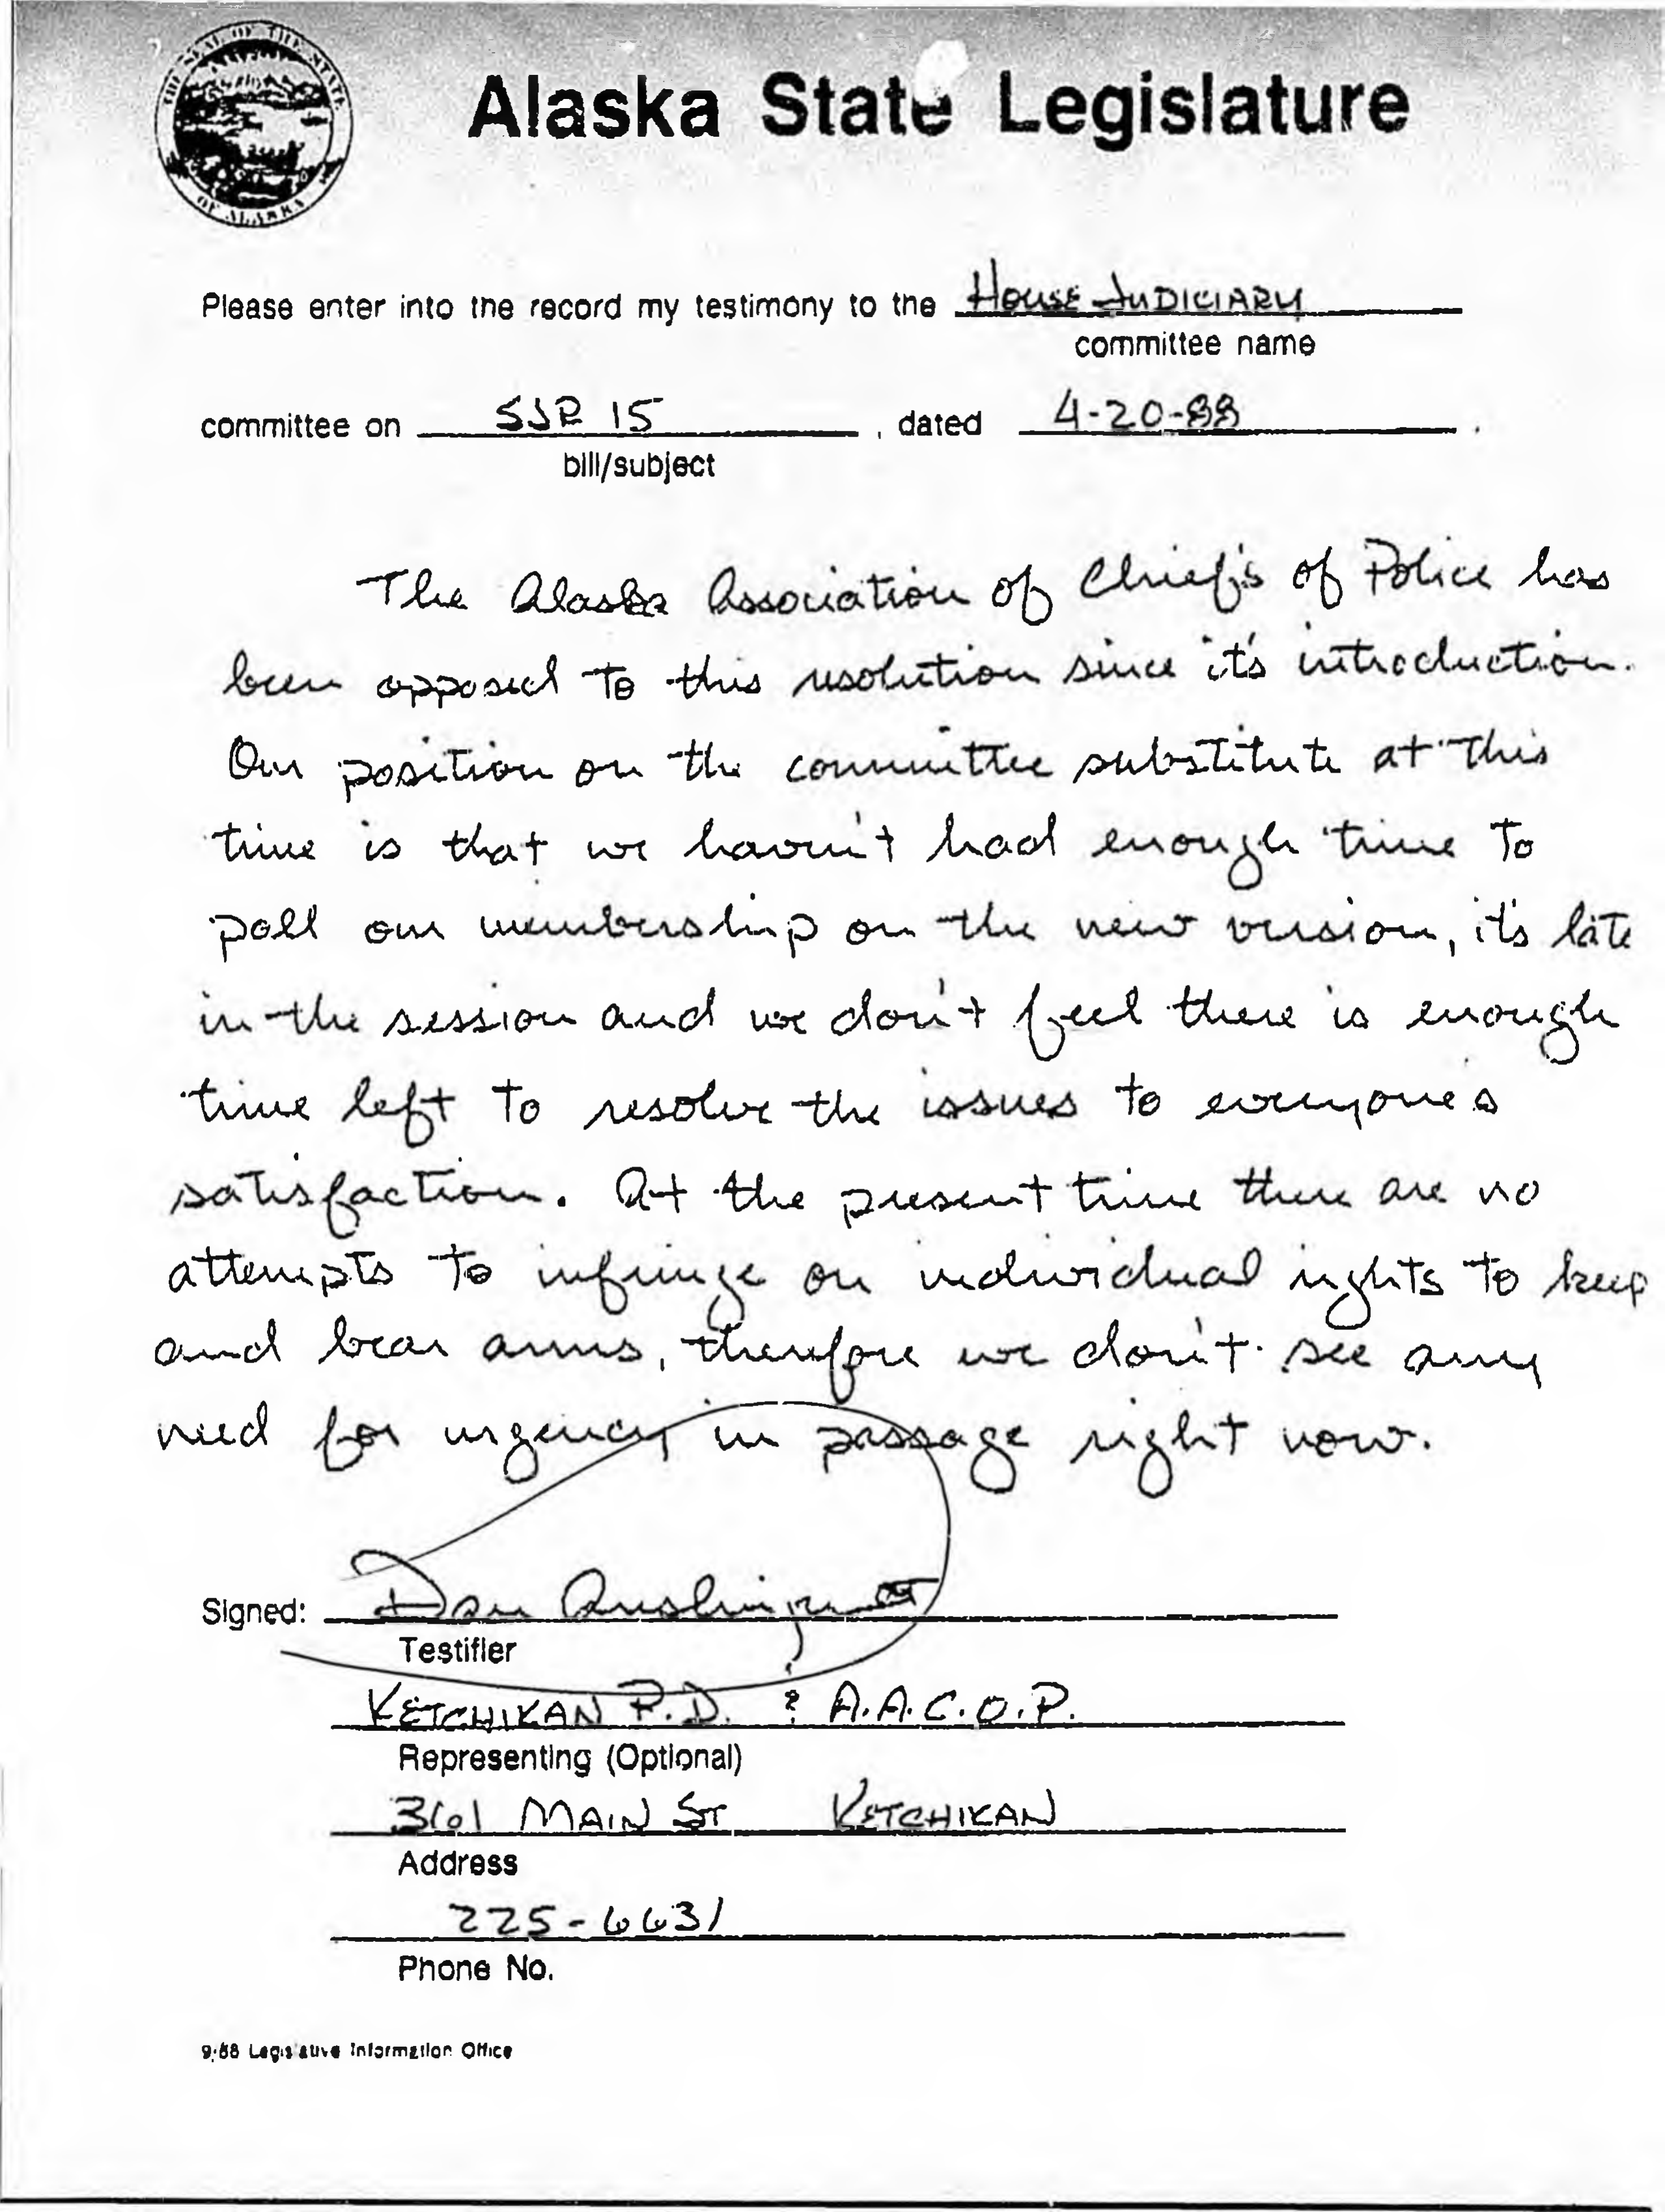 THE SEAL OF THE STATE OF ALASKA
Alaska State Legislature
Please enter into the record my testimony to the House Judiciary
committee name
committee on SJR 15, dated 4-20-88.
bill/subject
The Alaska Association of Chief's of Police has
been opposed to this resolution since it's introduction.
Our position on the committee substitute at this
time is that we haven't had enough time to
poll our membership on the new version, it's late
in the session and we don't feel there is enough
time left to resolve the issues to everyones
satisfaction. At the present time there are no
attempts to infringe on individual rights to keep
and bear arms, therefore we don't see any
need for urgency in passage right now.
Signed: Dan
Testifier
KETCHIKAN P.D. & A.A.C.O.P.
Representing (Optional)
361 MAIN ST KETCHIKAN
Address
225-6631
Phone No.
Legislative Information Office